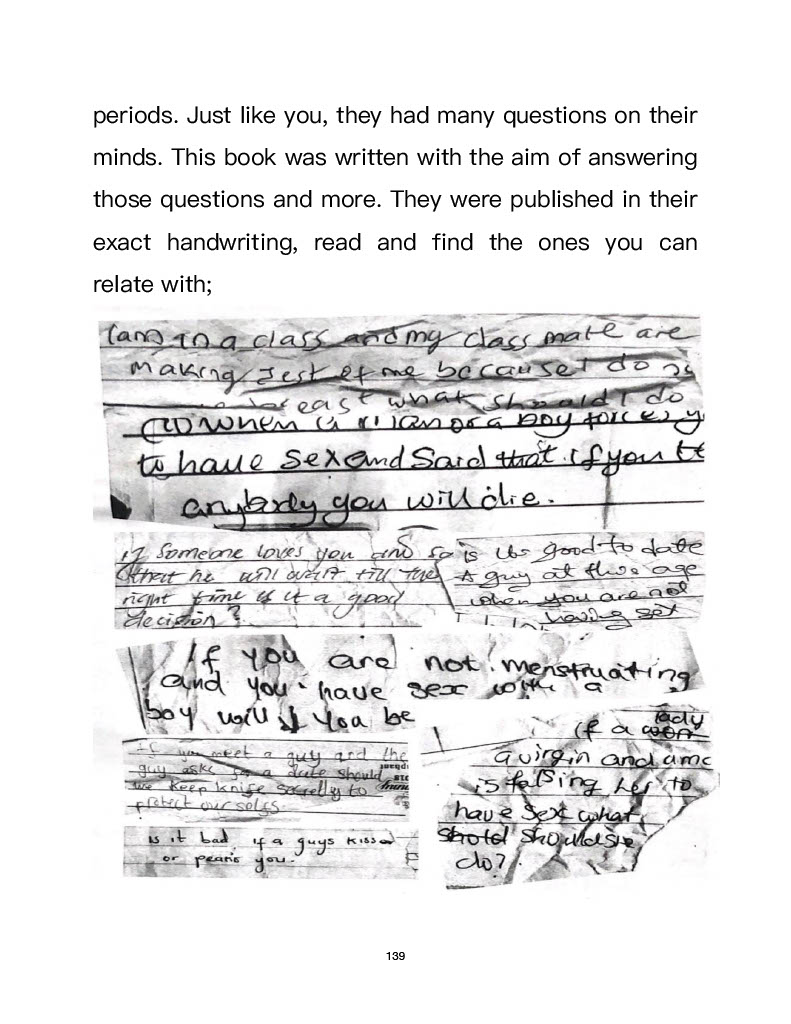 periods. Just like you, they had many questions on their
minds. This book was written with the aim of answering
those questions and more. They were published in their
exact handwriting, read and find the ones you can
relate with;
I am in a class and my class mate are
making jest of me because I do
breast what should I do
when a man or a boy force y
to have sex and said that if you te
anybody you will die.
if someone loves you and
that he will wait till the
right time is it a good
decision?
is it good to date
A guy at this age
when you are not
having sex
If you are not menstruating
and you have sex with a
boy will you be
If you meet a guy and the
guy asks for a date should
we keep knife secretly to
protect our selfs.
is it bad if a guys kissed
or you.
if a lady
a virgin and a
is her to
have sex what
should she
do?
139